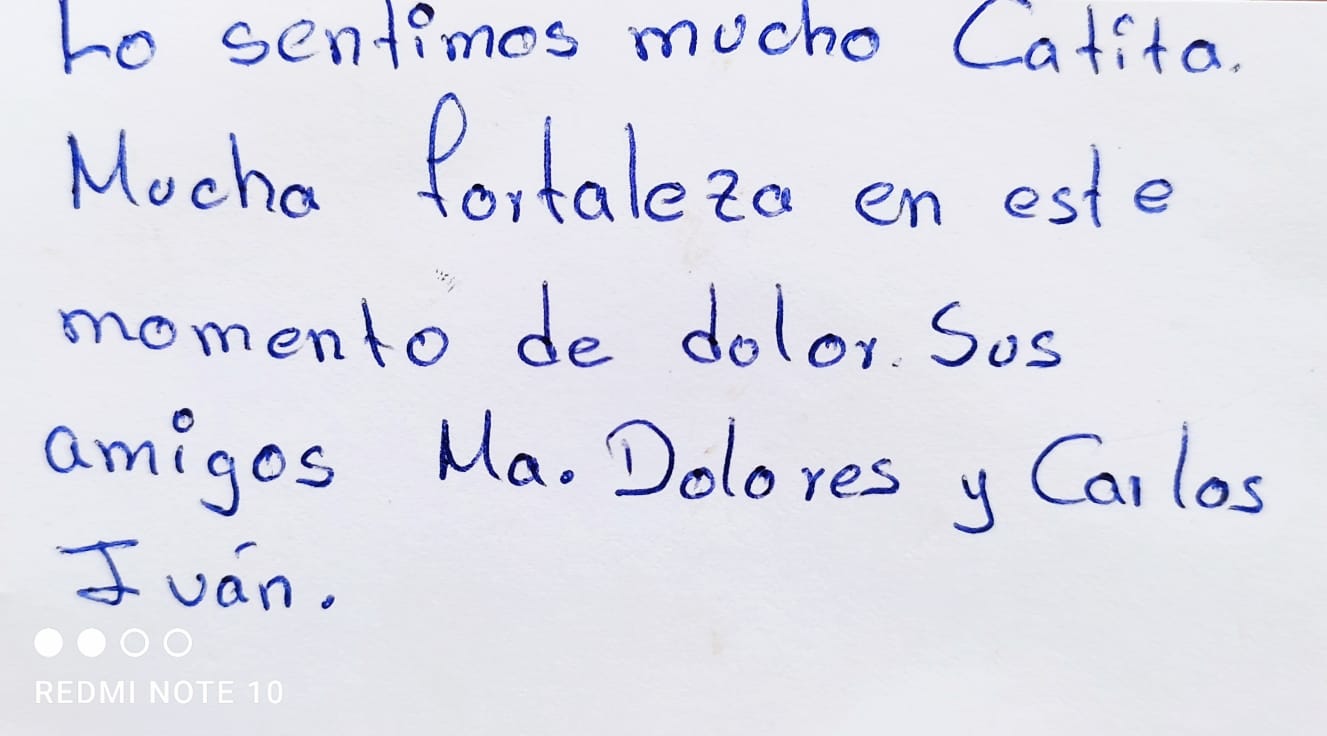 Lo sentimos mucho Catita.
Mucha fortaleza en este
momento de dolor. Sus
amigos Ma. Dolores y Carlos
Iván.
REDMI NOTE 10